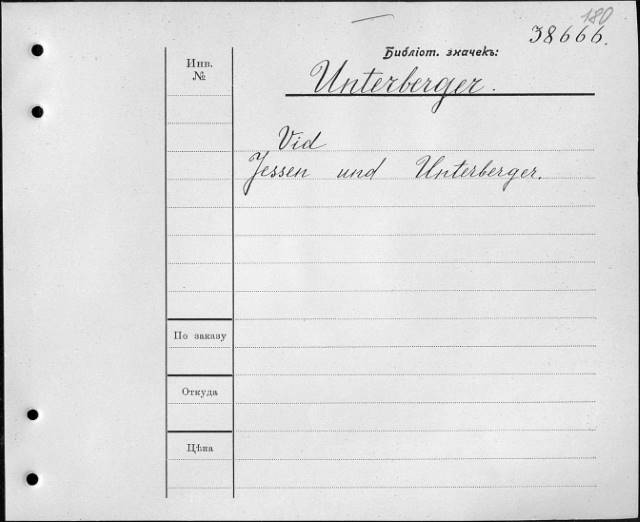 180
38666.
Библіот. значекъ:
Инв.
№
Unterberger.
Vid
Jessen und Unterberger.
По заказу
Откуда
Цѣна